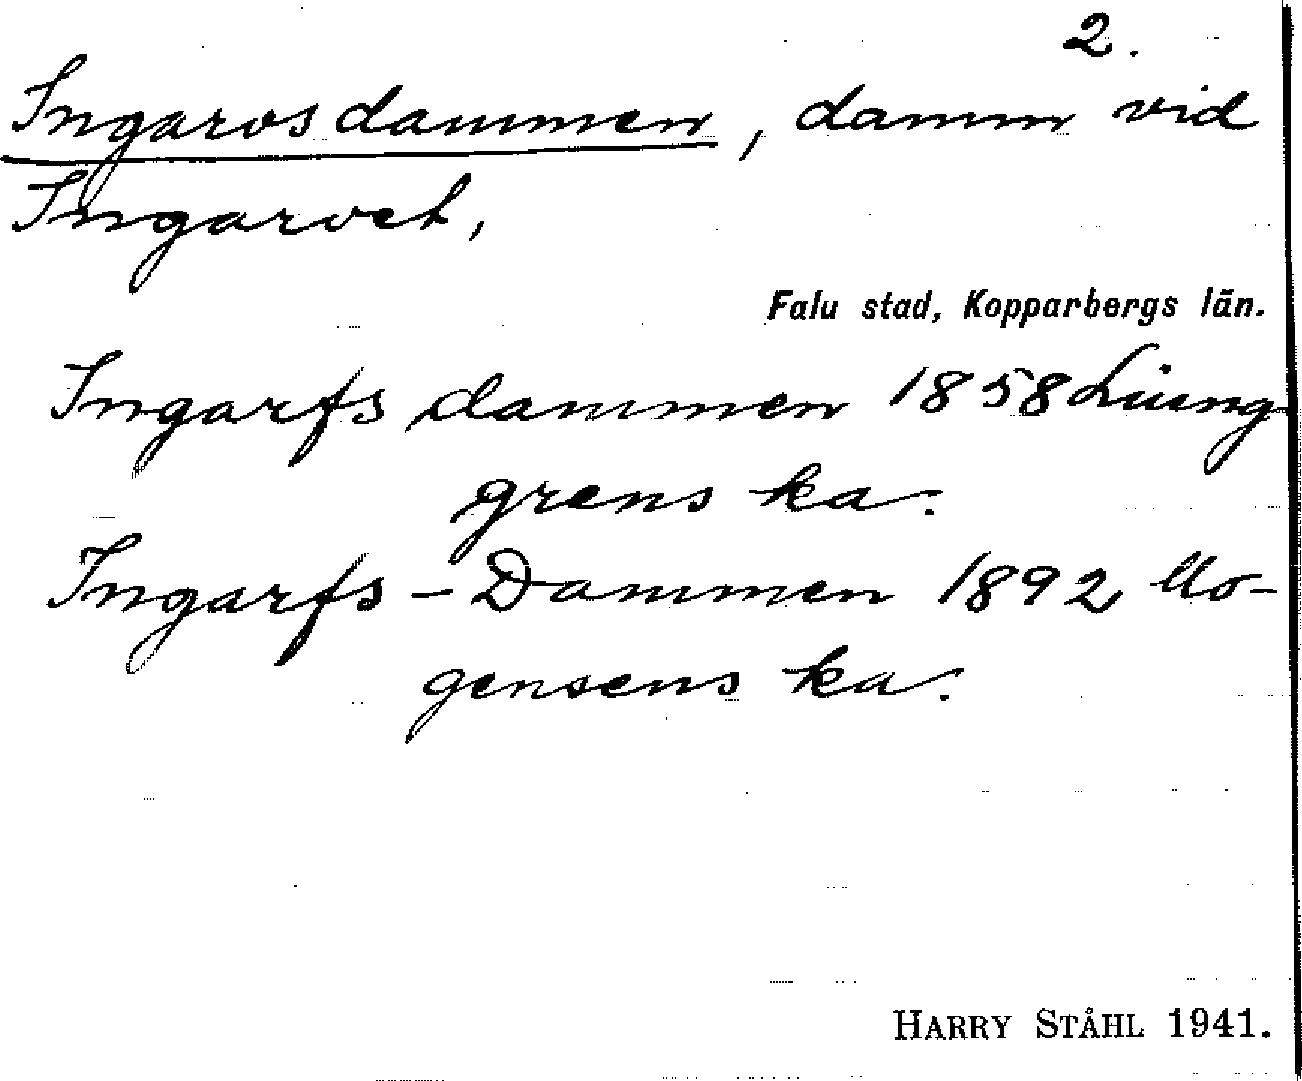 2.
Ingarvsdammen, damm vid
Ingarvet,
Falu stad, Kopparbergs län.
Ingarfs dammen 1858 Liung
grens ka.
Ingarfs-Dammen 1892 Mo-
gensens ka.
HARRY STÅHL 1941.